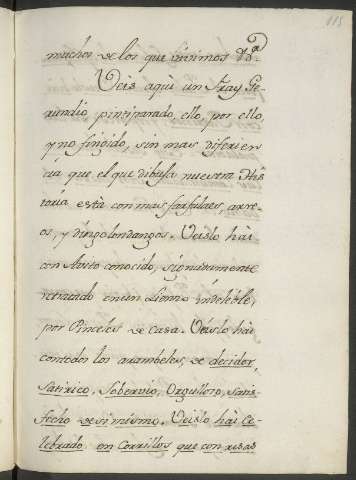 115
muchos de los que vivimos &a.
Veis aqui un Fray Ge-
rundio pintiparado, ello, por ello
y no fingido, sin mas diferien
cia, que el que dibuja nuestra His
toria està con mas farfulaes, arre
os, y dingolondangos. Veislo hai
con Auto conocido, signatamente
retratado en un Lienzo indeleble,
por Pinceles de Casa. Veislo hai
contodos los arambeles, de decidor,
Satirico, Sobervio, Orgulloso, Satis
fecho de si mismo. Veislo hai Ce-
lebrado en Corrillos que con risas